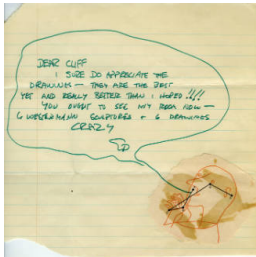 DEAR CLIFF
I SURE DO APPRECIATE THE
DRAWINGS — THEY ARE THE BEST
YET AND REALLY BETTER THAN I HOPED !!!!
YOU OUGHT TO SEE MY ROOM NOW —
6 WESTERMANN SCULPTURES + 6 DRAWINGS
CRAZY